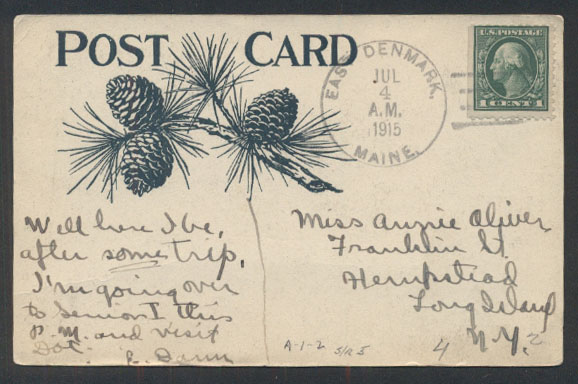 POST CARD
EAST DENMARK,
JUL
4
A.M.
1915
MAINE.
U.S. POSTAGE
1 CENT 1
Well here I be,
after some trip,
I'm going over
to I this
P.M. and visit
Dot.
Miss Annie Oliver
Franklin St.
Hempstead
Long Island
N.Y.
A-1-2
4
2